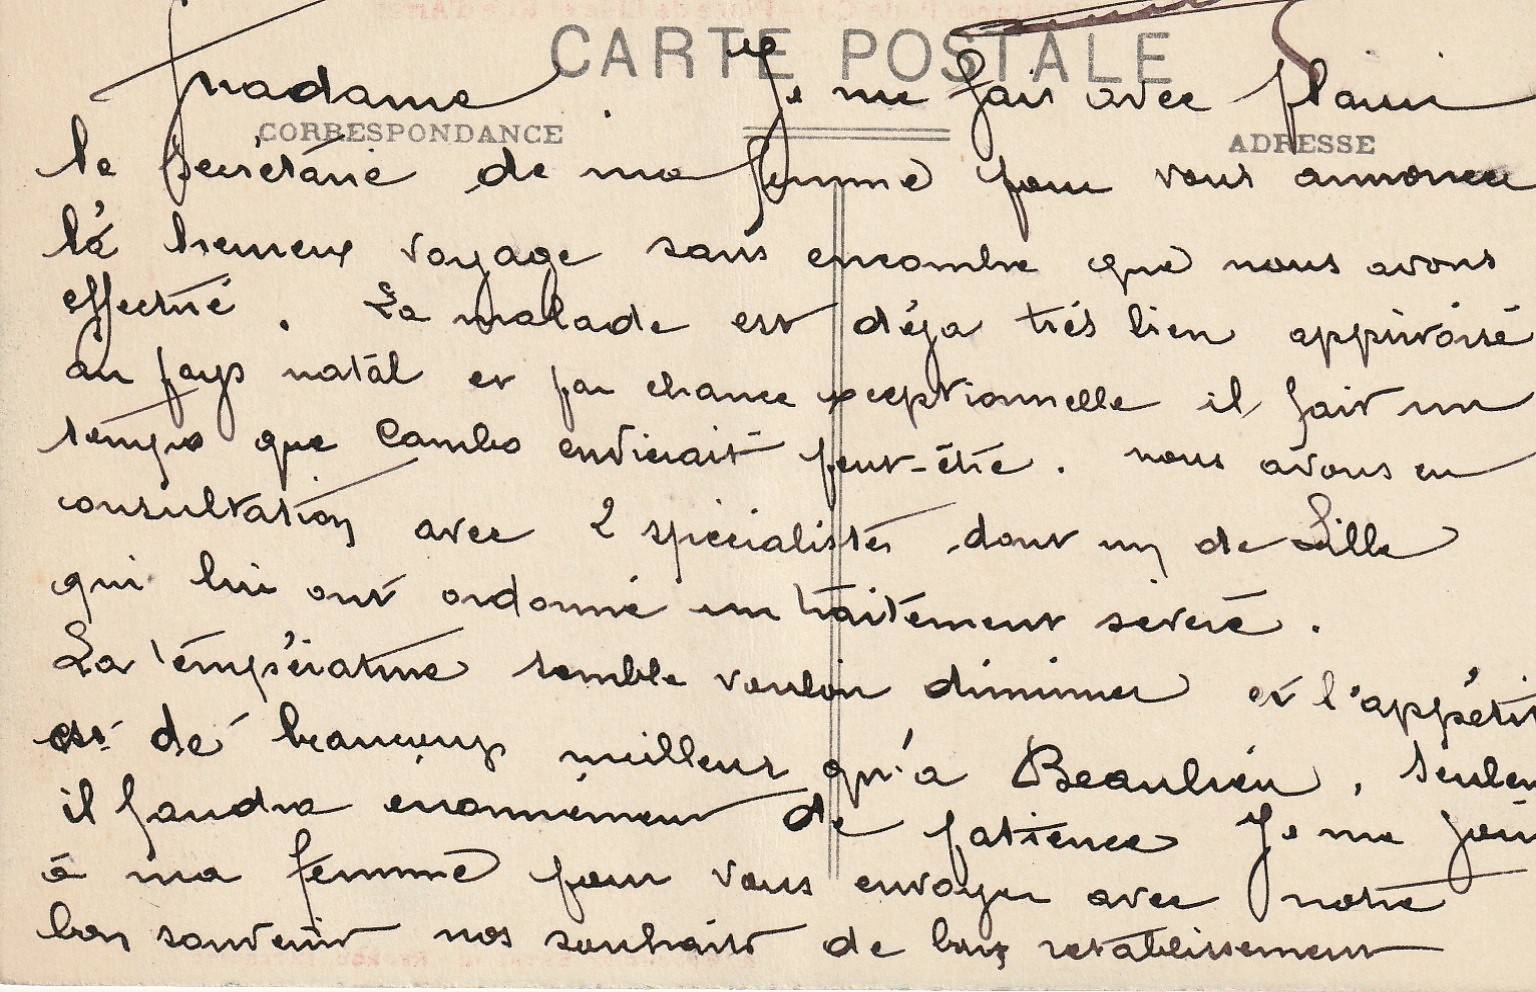 CARTE POSTALE
CORRESPONDANCE
ADRESSE
Madame. Je me fais avec plaisir
le secrétaire de ma femme pour vous annoncer
l'heureux voyage sans encombre que nous avons
effectué. La malade est déja très bien apprivoisé
au pays natal et par chance exceptionnelle il fait un
temps que Cambo envierait peut-être. nous avons eu
consultation avec 2 spécialistes dont un de Lille
qui lui ont ordonné un traitement sevère.
La température semble vouloir diminuer et l'appétit
est de beaucoup meilleur qu'a Beaulieu,
il faudra enormément de patience Je me
à ma femme pour vous envoyer avec notre
bon souvenir nos souhaits de bon retablissement